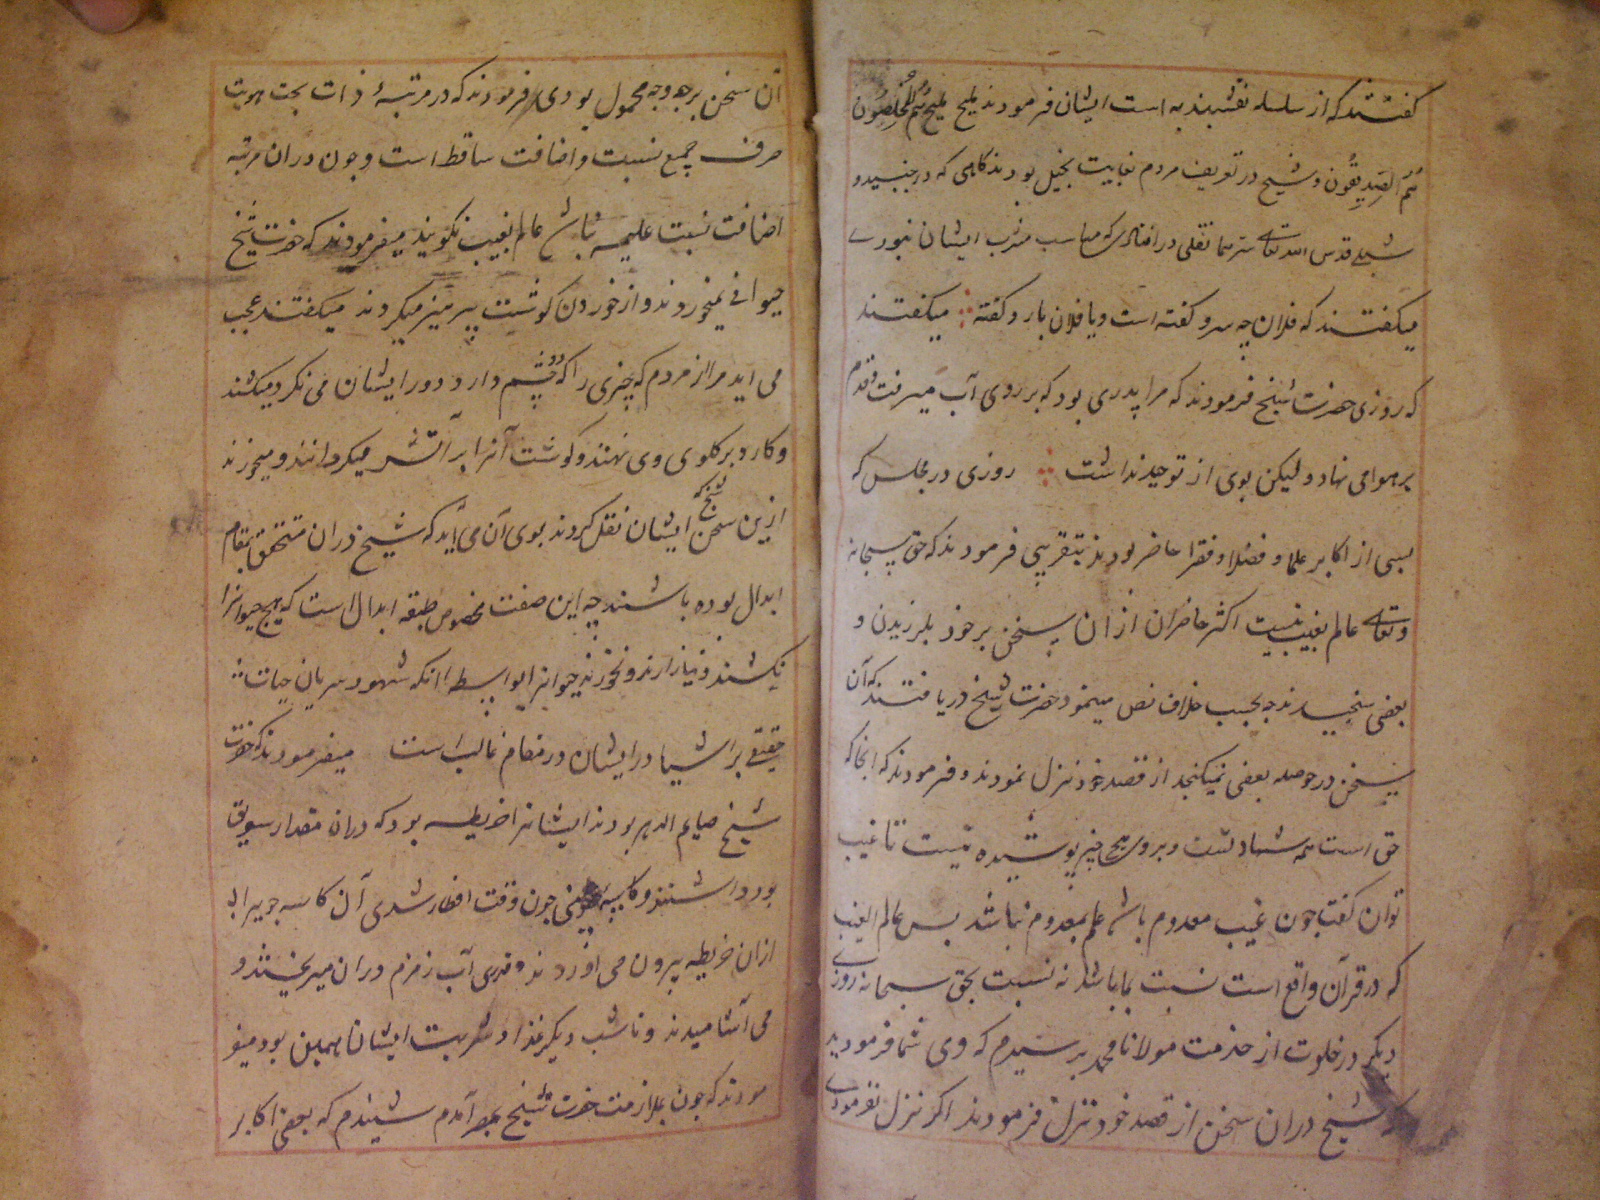 گفتند که از سلسله نقشبندیه است ایشان فرمودند ملیح ملیح هُمُ المُخلِصُون
هُمُ الصِدِیقُون و شیخ در تعریف مردم بغایت بخیل بودند گاهی که در جنید و
شبلی قدس الله تعالی سرهما نقلی در افتادی که مناسب مشرب ایشان نبودی
میگفتند که فلان چه سرد گفته است و یا فلان بارد گفته میگفتند
که روزی حضرت شیخ فرمودند که مرا پدری بود که بر روی آب میرفت و قدم
بر هوا می نهاد و لیکن بوی از توحید نداشت روزی در مجلس که
بسی از اکابر علما و فضلا و فقرا حاضر بودند بتقریبی فرمودند که حق سبحانه
و تعالی عالم بغیب نیست اکثر حاضران ازان سخن بر خود بلرزیدن و
بعضی چه بحسب خلاف نص مینمود حضرت شیخ دریافتند که آن
سخن در حوصله بعضی نمیگنجد از قصد خود تنزل نمودند و فرمودند که انجا که
حق است همه شهادتست و برو هیچ چیز پوشیده نیست تا غیب
توان گفت چون غیب معدوم باشد علم بمعدوم نباشد پس عالم الغیب
که در قرآن واقع است نسبت بما باشد نه نسبت بحق سبحانه روزی
دیگر در خلوت از خدمت مولانا محمد پرسیدم که وی شما فرمودید
که شیخ دران سخن از قصد خود تنزل فرمودند اگر تنزل نفرمودی
آن سخن بر چه وجه محمول بودی فرمودند که در مرتبهٔ ذات بحت هویت
صرف جمیع نسبت و اضافت ساقط است و چون دران مرتبه
اضافت نسبت علیمه نباشد عالم بغیب نگویند میفرمودند که حضرت شیخ
حیوانی نمیخوردند و از خوردن گوشت پرهیز میکردند میگفتند عجب
می اید مرا از مردم که چیزی را که دو چشم دارد و در ایشان می نگرد میکشند
و کارد بر گلوی وی نهند و گوشت آنرا بر آتش میگردانند و میخورند
ازین سخن که شیخ ایشان نقل کردند بوی آن می آید که شیخ دران متحقق بمقام
ابدال بوده باشند چه این صفت مخصوص طبقه ابدال است که هیچ حیوانرا
نکشند و نیازارند و نخورند حیوانرا بواسطه انکه شهود سریان حیات
حقیقی بر اشیا در ایشان در مقام غالب است میفرمودند که حضرت
شیخ صایم الدهر بودند ایشانرا خریطه بود که دران مقدار سویق
بود داشتند و کاسه چون وقت افطار شدی آن کاسه
ازان خریطه بیرون می آوردند و قدری آب زمزم دران میریختند و
می آشامیدند و تا شب دیگر غذا و شربت ایشان همین بود میفر
مودند که چون بملازمت حضرت شیخ بمصر آمدم شنیدم که بعضی اکابر